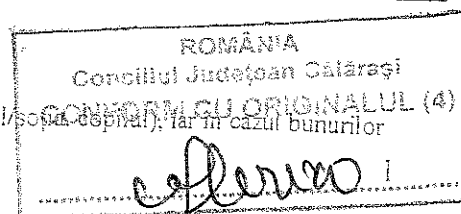 ROMÂNIA
Consiliul Județean Călărași
CONFORM CU ORIGINALUL (4)
copilul), iar în cazul bunurilor